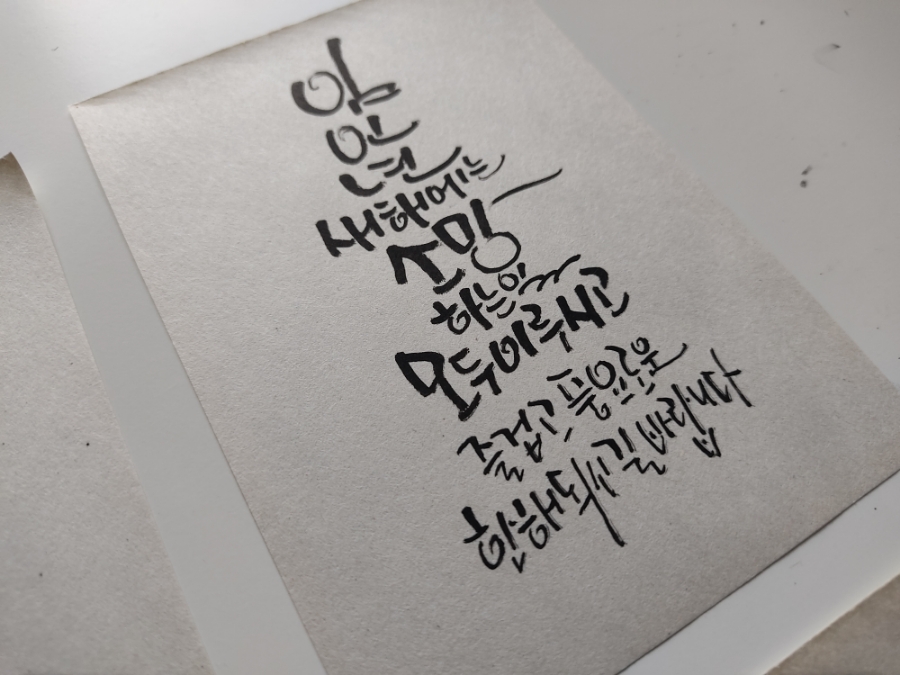 임
인
년
새해에는
소망
하는일
모두이루시고
즐겁고 풍요로운
한해되시길 바랍니다